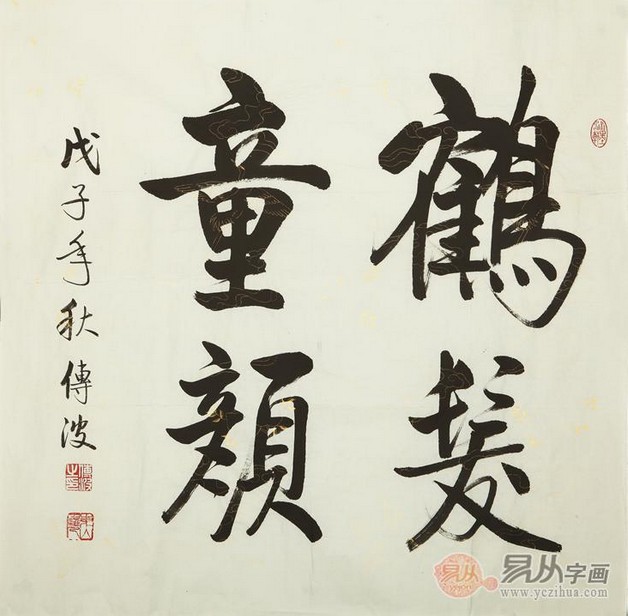 鶴髮
童顏
戊子年秋傳波
易从字画
www.yczihua.com